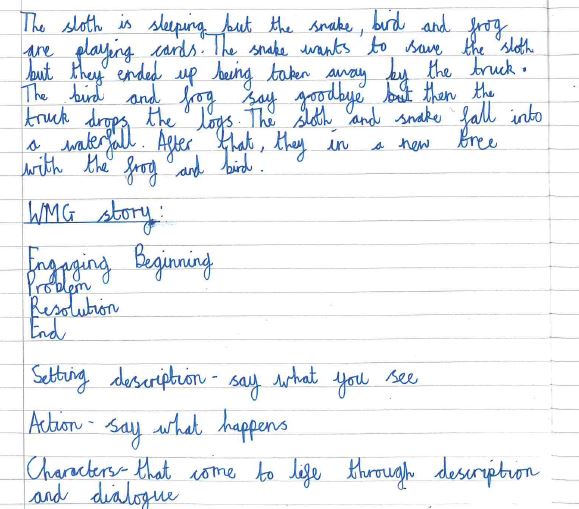 The sloth is sleeping but the snake, bird and frog
are playing cards. The snake wants to save the sloth
but they ended up being taken away by the truck.
The bird and frog say goodbye but then the
truck drops the logs. The sloth and snake fall into
a waterfall. After that, they in a new tree
with the frog and bird.
WMG story:
Engaging Beginning
Problem
Resolution
End
Setting description - say what you see
Action - say what happens
Characters - that come to life through description
and dialogue